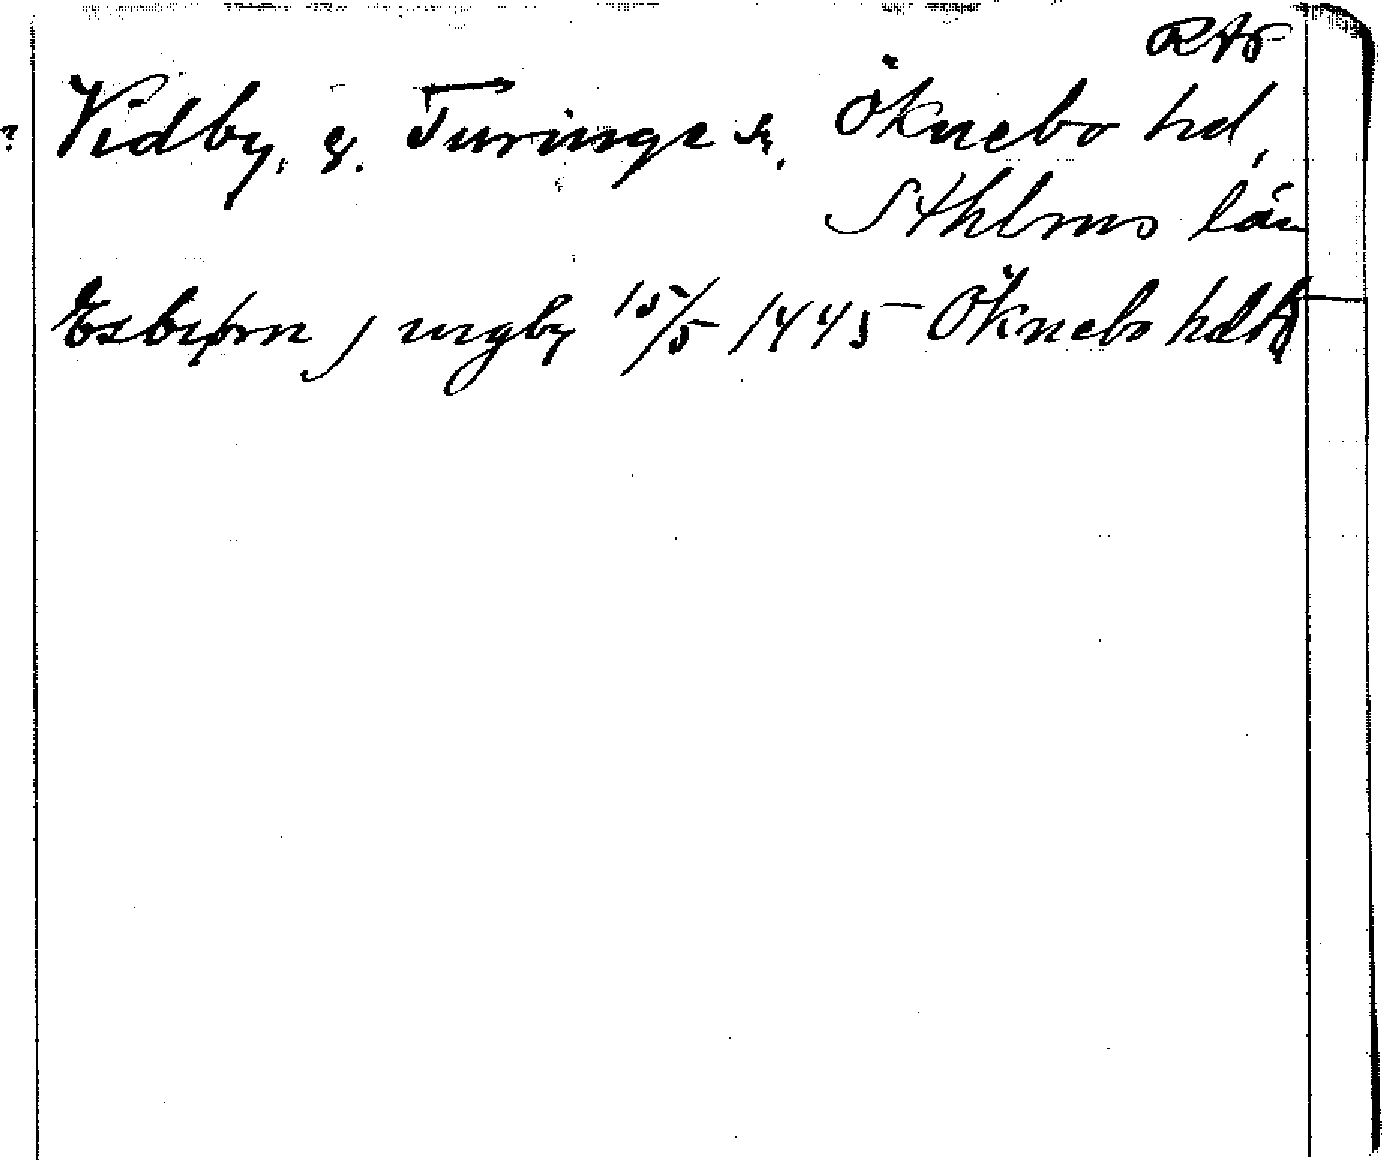 RAp
? Vidby, g. Turinge sn, Öknebo hd,
Sthlms län
Esbjørn j vigby 15/5 1445 Öknebo hdtg